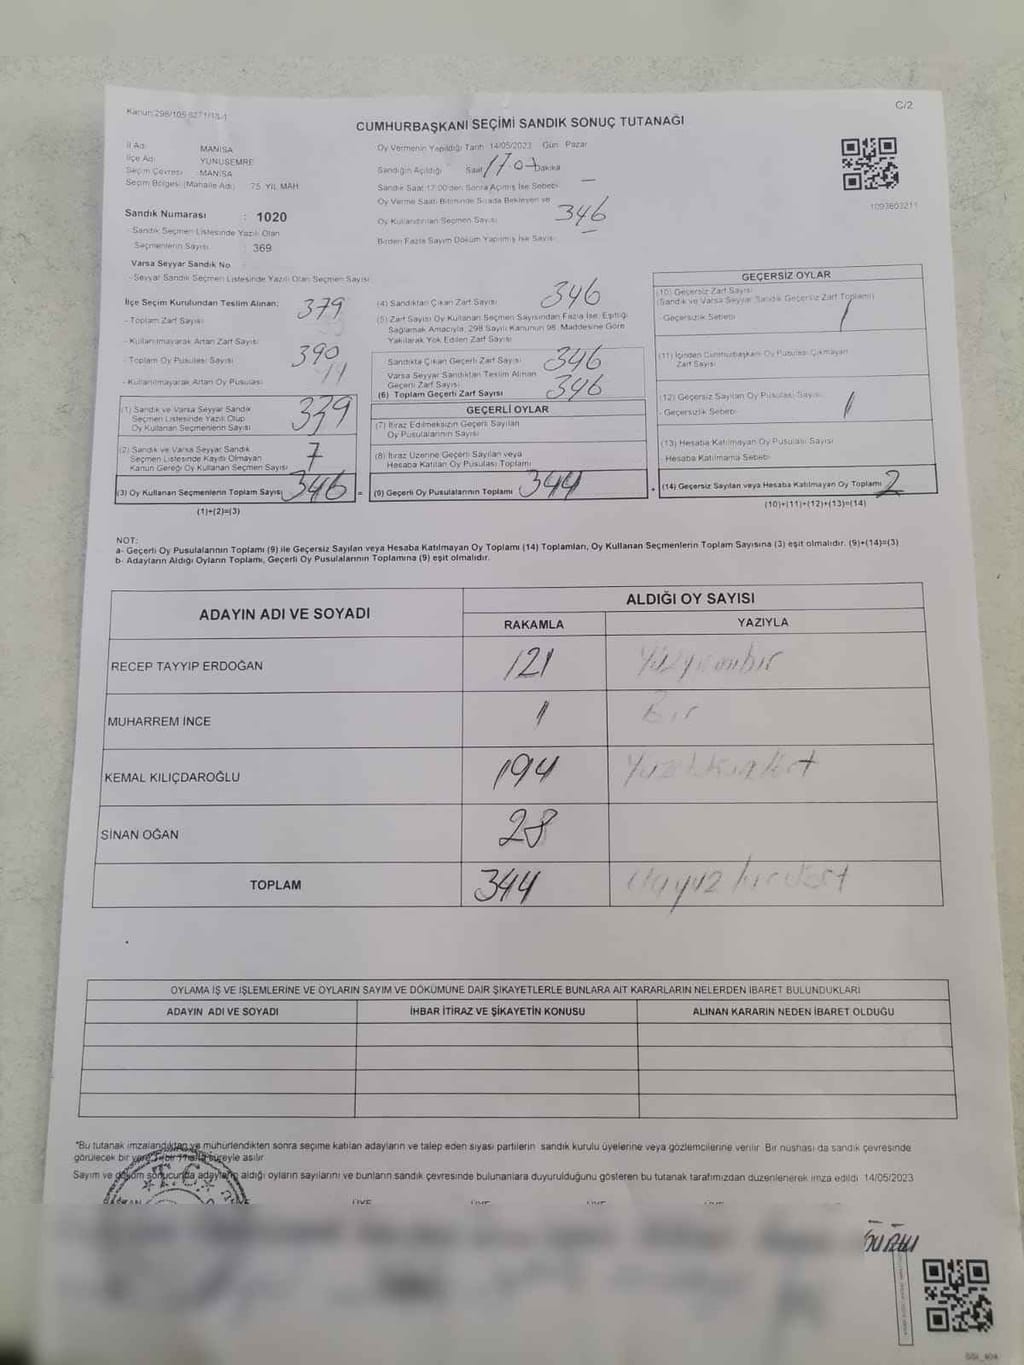 Kanun:298/105 6271/15-1
C/2
CUMHURBAŞKANI SEÇİMİ SANDIK SONUÇ TUTANAĞI
İl Adı MANİSA
İlçe Adı YUNUSEMRE
Seçim Çevresi MANİSA
Seçim Bölgesi (Mahalle Adı) 75 YIL MAH
Sandık Numarası : 1020
- Sandık Seçmen Listesinde Yazılı Olan
Seçmenlerin Sayısı 369
Varsa Seyyar Sandık No
- Seyyar Sandık Seçmen Listesinde Yazılı Olan Seçmen Sayısı
Oy Vermenin Yapıldığı Tarih 14/05/2023 Gün Pazar
Sandığın Açıldığı Saat 17:07 Dakika
Sandık Saat 17:00'den Sonra Açılmış İse Sebebi —
Oy Verme Saati Bitiminde Sırada Bekleyen ve
Oy Kullandırılan Seçmen Sayısı 346
Birden Fazla Sayım Döküm Yapılmış İse Sayısı —
1093603211
İlçe Seçim Kurulundan Teslim Alınan:
- Toplam Zarf Sayısı 379
- Kullanılmayarak Artan Zarf Sayısı
- Toplam Oy Pusulası Sayısı 390
- Kullanılmayarak Artan Oy Pusulası 11
(1) Sandık ve Varsa Seyyar Sandık
Seçmen Listesinde Yazılı Olup
Oy Kullanan Seçmenlerin Sayısı 339
(2) Sandık ve Varsa Seyyar Sandık
Seçmen Listesinde Kayıtlı Olmayan
Kanun Gereği Oy Kullanan Seçmen Sayısı 7
(3) Oy Kullanan Seçmenlerin Toplam Sayısı 346 =
(1)+(2)=(3)
(4) Sandıktan Çıkan Zarf Sayısı 346
(5) Zarf Sayısı Oy Kullanan Seçmen Sayısından Fazla İse, Eşitliği
Sağlamak Amacıyla, 298 Sayılı Kanunun 98. Maddesine Göre
Yakılarak Yok Edilen Zarf Sayısı
- Sandıkta Çıkan Geçerli Zarf Sayısı 346
Varsa Seyyar Sandıktan Teslim Alınan
Geçerli Zarf Sayısı
(6) Toplam Geçerli Zarf Sayısı 346
GEÇERLİ OYLAR
(7) İtiraz Edilmeksizin Geçerli Sayılan
Oy Pusulalarının Sayısı
(8) İtiraz Üzerine Geçerli Sayılan veya
Hesaba Katılan Oy Pusulası Toplamı
(9) Geçerli Oy Pusulalarının Toplamı 344 +
GEÇERSİZ OYLAR
(10) Geçersiz Zarf Sayısı
(Sandık ve Varsa Seyyar Sandık Geçersiz Zarf Toplamı)
- Geçersizlik Sebebi 1
(11) İçinden Cumhurbaşkanı Oy Pusulası Çıkmayan
Zarf Sayısı
(12) Geçersiz Sayılan Oy Pusulası Sayısı
- Geçersizlik Sebebi 1
(13) Hesaba Katılmayan Oy Pusulası Sayısı
- Hesaba Katılmama Sebebi
(14) Geçersiz Sayılan veya Hesaba Katılmayan Oy Toplamı 2
(10)+(11)+(12)+(13)=(14)
NOT:
a- Geçerli Oy Pusulalarının Toplamı (9) ile Geçersiz Sayılan veya Hesaba Katılmayan Oy Toplamı (14) Toplamları, Oy Kullanan Seçmenlerin Toplam Sayısına (3) eşit olmalıdır. (9)+(14)=(3)
b- Adayların Aldığı Oyların Toplamı, Geçerli Oy Pusulalarının Toplamına (9) eşit olmalıdır.
ADAYIN ADI VE SOYADI
ALDIĞI OY SAYISI
RAKAMLA YAZIYLA
RECEP TAYYIP ERDOĞAN 121 Yüzyirmibir
MUHARREM İNCE 1 Bir
KEMAL KILIÇDAROĞLU 194 Yüzdoksandört
SİNAN OĞAN 28
TOPLAM 344 Üçyüz kırkdört
OYLAMA İŞ VE İŞLEMLERİNE VE OYLARIN SAYIM VE DÖKÜMÜNE DAİR ŞİKAYETLERLE BUNLARA AİT KARARLARIN NELERDEN İBARET BULUNDUKLARI
ADAYIN ADI VE SOYADI İHBAR İTİRAZ VE ŞİKAYETİN KONUSU ALINAN KARARIN NEDEN İBARET OLDUĞU
*Bu tutanak imzalandıktan ve mühürlendikten sonra seçime katılan adayların ve talep eden siyasi partilerin sandık kurulu üyelerine veya gözlemcilerine verilir. Bir nushası da sandık çevresinde
görülecek bir yere 1 bir hafta süreyle asılır
Sayım ve döküm sonucunda adayların aldığı oyların sayılarını ve bunların sandık çevresinde bulunanlara duyurulduğunu gösteren bu tutanak tarafımızdan düzenlenerek imza edildi. 14/05/2023
T.C.
BAŞKAN ÜYE ÜYE ÜYE ÜYE